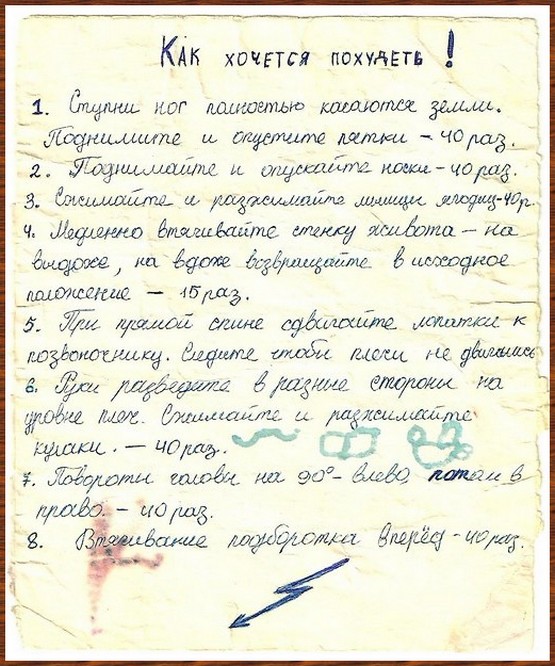 Как хочется похудеть!
1. Ступни ног полностью касаются земли.
Поднимите и опустите пятки – 40 раз.
2. Поднимайте и опускайте носки – 40 раз.
3. Сжимайте и разжимайте мышцы ягодиц – 40 р.
4. Медленно втягивайте стенку живота – на
выдохе, на вдохе возвращайте в исходное
положение – 15 раз.
5. При прямой спине сдвигайте лопатки к
позвоночнику. Следите чтобы плечи не двигались
6. Руки разведите в разные стороны на
уровне плеч. Сжимайте и разжимайте
кулаки. – 40 раз.
7. Повороты головы на 90° – влево, потом в
право. – 40 раз.
8. Втягивание подбородка вперёд – 40 раз.